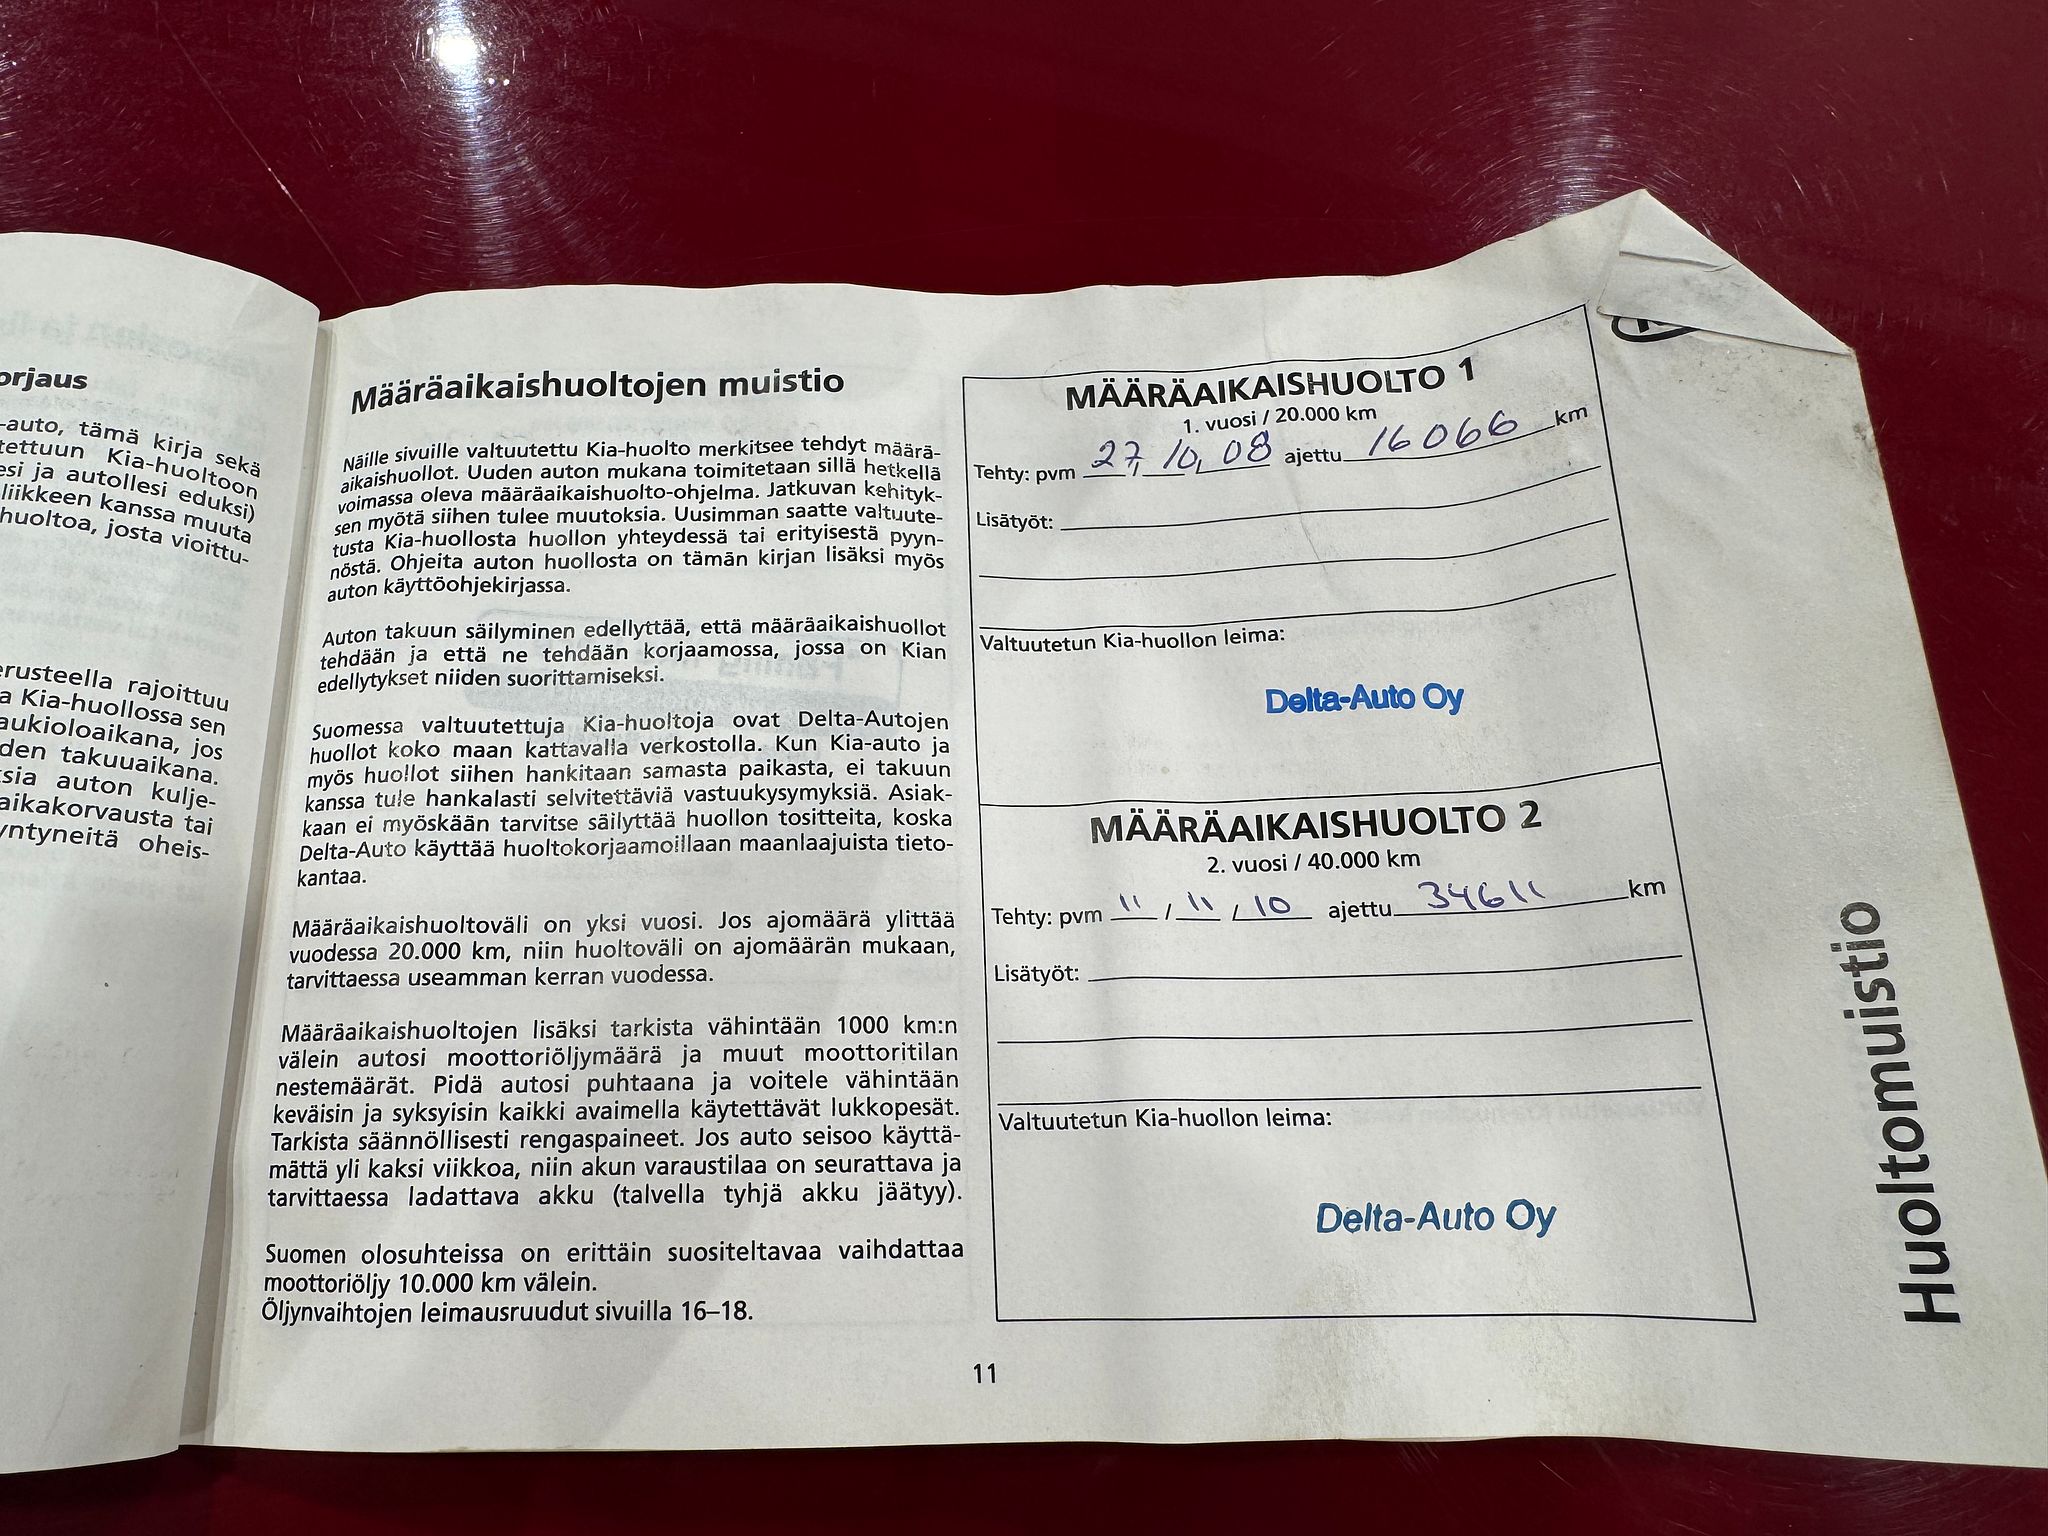 orjaus
-auto, tämä kirja sekä
tettuun Kia-huoltoon
esi ja autollesi eduksi)
liikkeen kanssa muuta
huoltoa, josta vioittu-
erusteella rajoittuu
a Kia-huollossa sen
aukioloaikana, jos
den takuuaikana.
sia auton kulje-
aikakorvausta tai
yntyneitä oheis-
Määräaikaishuoltojen muistio
Näille sivuille valtuutettu Kia-huolto merkitsee tehdyt määrä-
aikaishuollot. Uuden auton mukana toimitetaan sillä hetkellä
voimassa oleva määräaikaishuolto-ohjelma. Jatkuvan kehityk-
sen myötä siihen tulee muutoksia. Uusimman saatte valtuute-
tusta Kia-huollosta huollon yhteydessä tai erityisestä pyyn-
nöstä. Ohjeita auton huollosta on tämän kirjan lisäksi myös
auton käyttöohjekirjassa.
Auton takuun säilyminen edellyttää, että määräaikaishuollot
tehdään ja että ne tehdään korjaamossa, jossa on Kian
edellytykset niiden suorittamiseksi.
Suomessa valtuutettuja Kia-huoltoja ovat Delta-Autojen
huollot koko maan kattavalla verkostolla. Kun Kia-auto ja
myös huollot siihen hankitaan samasta paikasta, ei takuun
kanssa tule hankalasti selvitettäviä vastuukysymyksiä. Asiak-
kaan ei myöskään tarvitse säilyttää huollon tositteita, koska
Delta-Auto käyttää huoltokorjaamoillaan maanlaajuista tieto-
kantaa.
Määräaikaishuoltoväli on yksi vuosi. Jos ajomäärä ylittää
vuodessa 20.000 km, niin huoltoväli on ajomäärän mukaan,
tarvittaessa useamman kerran vuodessa.
Määräaikaishuoltojen lisäksi tarkista vähintään 1000 km:n
välein autosi moottoriöljymäärä ja muut moottoritilan
nestemäärät. Pidä autosi puhtaana ja voitele vähintään
keväisin ja syksyisin kaikki avaimella käytettävät lukkopesät.
Tarkista säännöllisesti rengaspaineet. Jos auto seisoo käyttä-
mättä yli kaksi viikkoa, niin akun varaustilaa on seurattava ja
tarvittaessa ladattava akku (talvella tyhjä akku jäätyy).
Suomen olosuhteissa on erittäin suositeltavaa vaihdattaa
moottoriöljy 10.000 km välein.
Öljynvaihtojen leimausruudut sivuilla 16–18.
MÄÄRÄAIKAISHUOLTO 1
1. vuosi / 20.000 km
Tehty: pvm 27, 10, 08 ajettu 16066 km
Lisätyöt:
Valtuutetun Kia-huollon leima:
Delta-Auto Oy
MÄÄRÄAIKAISHUOLTO 2
2. vuosi / 40.000 km
Tehty: pvm 11 / 11 / 10 ajettu 34611 km
Lisätyöt:
Valtuutetun Kia-huollon leima:
Delta-Auto Oy
Huoltomuistio
11